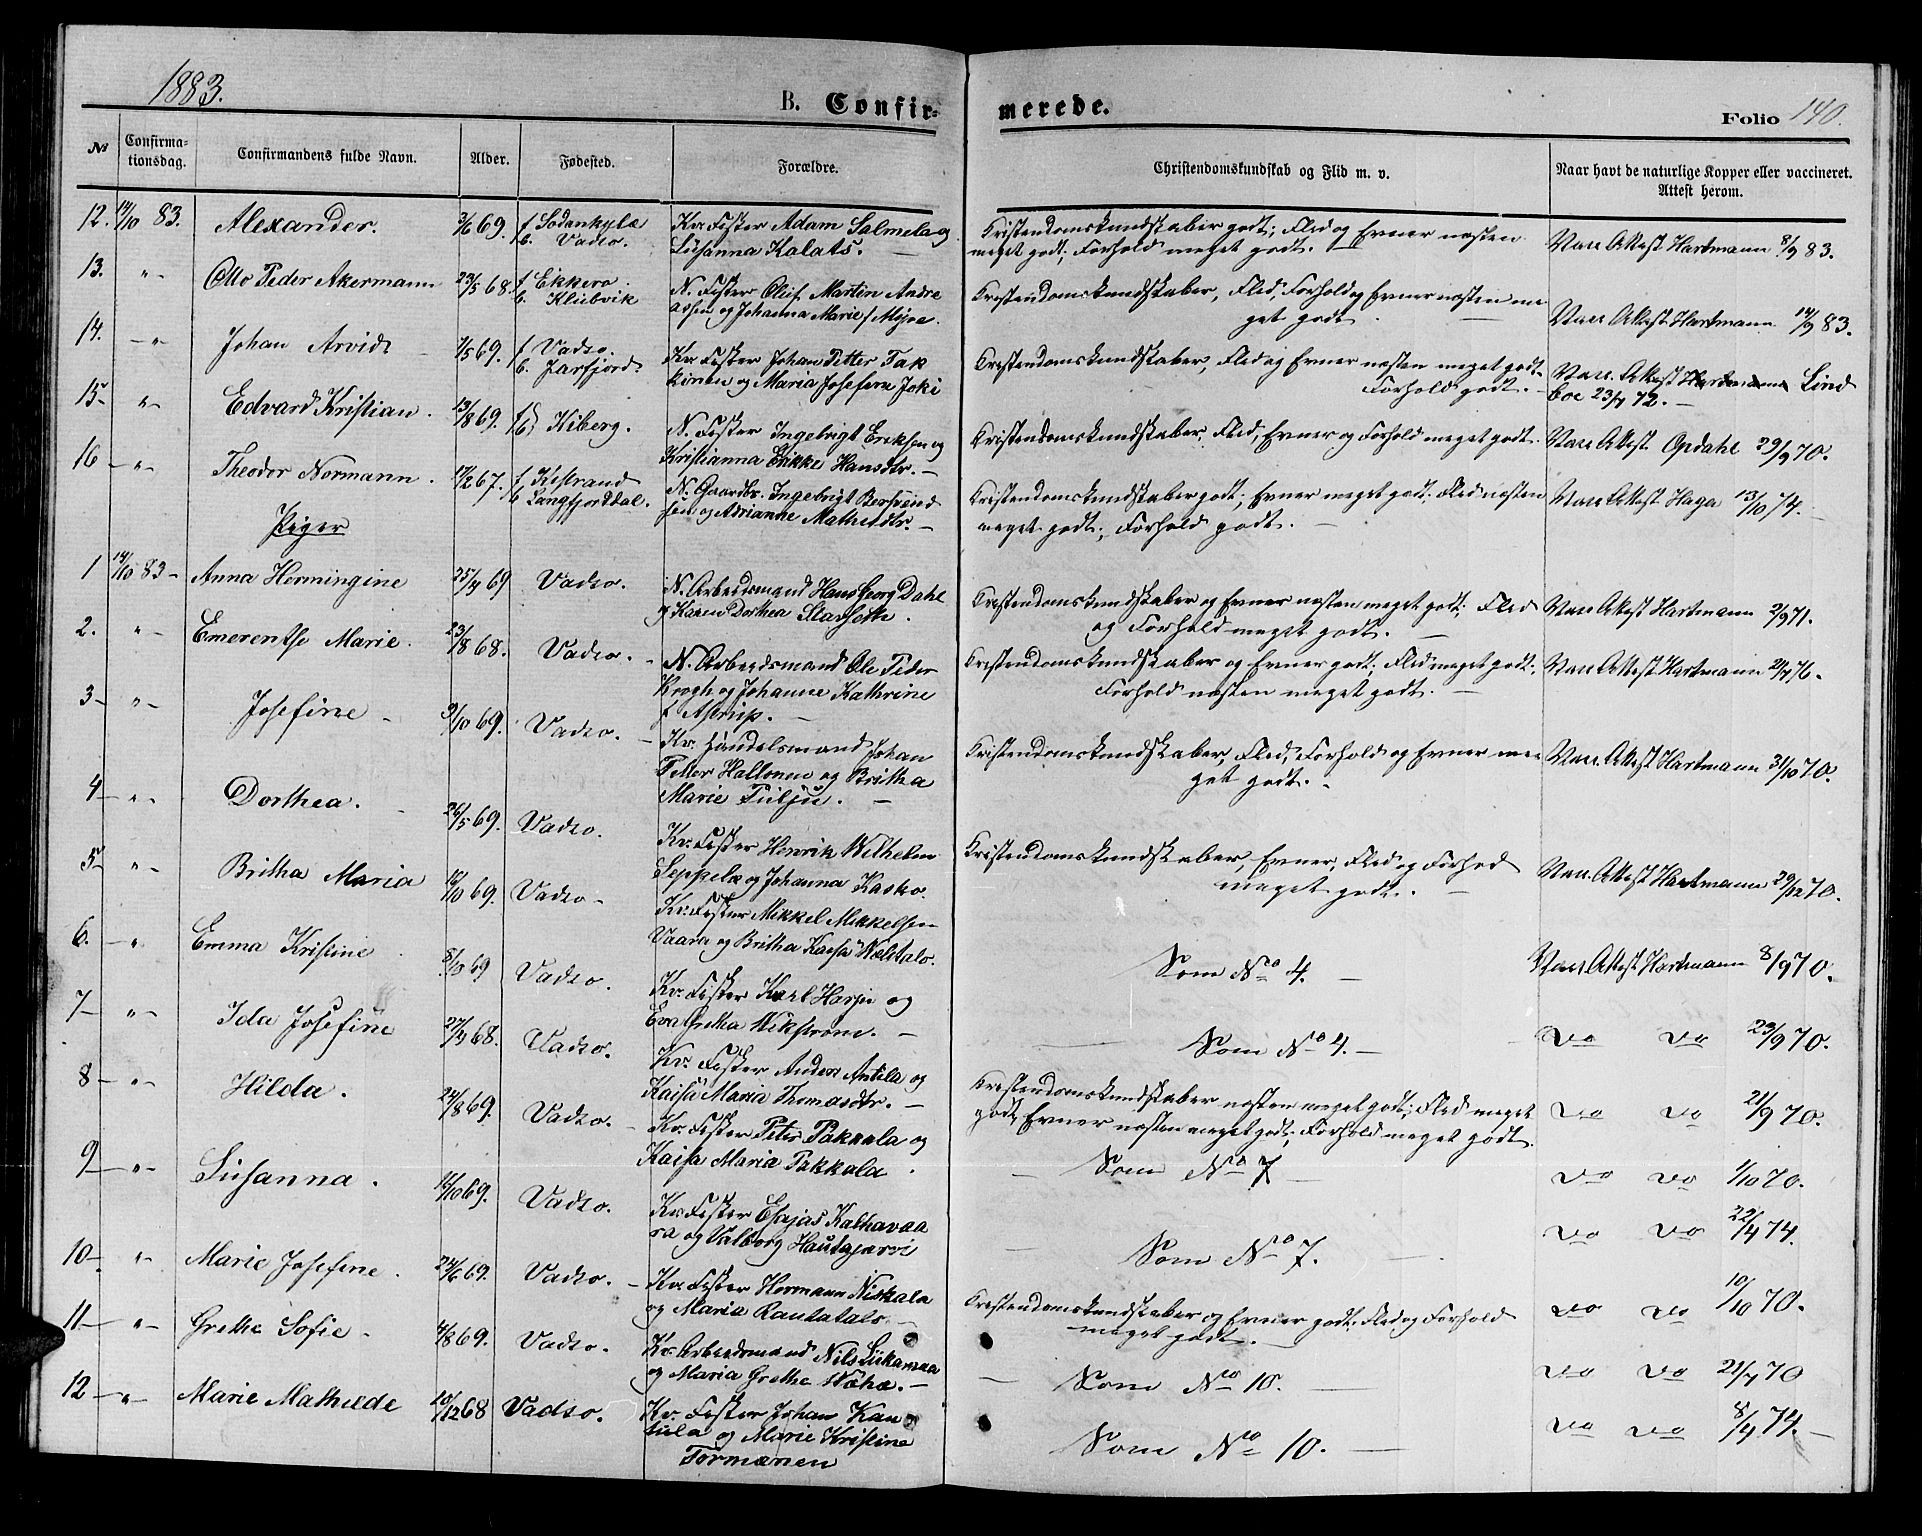 1883.
B. Confirmerede.
Folio 140.
№ Confirmationsdag. Confirmandens fulde Navn. Alder. Fødested. Forældre. Christendomskundskab og Flid m. v. Naar havt de naturlige Kopper eller vaccineret. Attest herom.
12. 14/10 83. Alexander. 3/6 69. f Sodankylæ Kv. Fisker Adam Salmela og Kristendomskundskaber godt; Flid og Evner næsten Vacc. Attest Hartmann 8/9 83.
b. Vadsø. Susanna Kalats. — meget godt; Forhold meget godt. —
13. " Otto Peder Akermann 23/5 68 f Ekkerø N. Fisker Oluf Martin Andre Kristendomskundskaber, Flid, Forhold og Evner næsten me Vacc. Attest Hartmann 14/9 83.
b. Kiebvik assen og Johanna Marie f Mojre. get godt.
14. " Johan Arvid 7/5 69. f Vadsø Kv. Fisker Johan Petter Tak Kristendomskundskaber, Flid og Evner næsten meget godt. Vacc. Attest Lind
b. Jarfjord. kinen og Maria Josefina Joki Forhold godt. — boe 23/7 72. —
15 " Edvard Kristian. 13/8 69. f b Kiberg. N. Fisker Ingebrigt Eriksen og Kristendomskundskaber, Flid, Evner og Forhold meget godt. Vacc. Attest Opdahl 29/9 70.
Kristianna Erikke Hansdtr. —
16 " Theodor Normann. 17/2 67. f Kistrand N. Gaardbr. Ingebrigt Bersvend Kristendomskundskaber godt; Evner meget godt. Flid næsten Vacc. Attest Haga 13/10 74. —
b Langfjorddal. sen og Adrianne Mathisdtr. — meget godt; Forhold godt. —
Piger
1 14/10 83 — Anna Hermingine 25/4 69 Vadsø. N. Arbeidsmand Hans Georg Dahl Kristendomskundskaber og Evner næsten meget godt; Flid Vacc. Attest Hartmann 2/9 71.
og Karen Dorthea Slarseth. og Forhold meget godt. —
2. " Emerentse Marie. 23/8 68. Vadsø. — N. Arbeidsmand Ole Peder Kristendomskundskaber og Evner godt; Flid meget godt; Vacc. Attest Hartmann 21/7 76.
Krogh og Johanne Kathrine Forhold næsten meget godt. —
f Astrup. —
3 — " Josefine — 9/10 69. Vadsø. — Kv. Handelsmand Johan Kristendomskundskaber, Flid, Forhold og Evner me Vacc. Attest Hartmann 31/10 70.
Petter Hallonen og Britha get godt.
Marie Puljü. —
4 — " Dorthea. 26/5 69. Vadsø. Kv. Fisker Henrik Wilhelm Kristendomskundskaber, Evner, Flid og Forhod Vacc. Attest Hartmann 29/12 70.
Seppelæ og Johanna Kasko. meget godt. —
5 — " Britha Maria 18/10 69. Vadsø — Kv. Fisker Mikkel Mikkelsen Som No 4. — Vacc. Attest Hartmann 8/9 70.
Vaara og Britha Kaisa Wæltalo.
6. — " Emma Kristine 8/10 69 Vadsø. Kv. Fisker Karl Harju og Som No 4. — Do Do 23/9 70.
Eva Gretha Wikstrøm. —
7 — " Ida Josefine 27/9 68. Vadsø. Kv. Fisker Anders Antila og Kristendomskundskaber næsten meget godt; Flid meget Do Do 21/9 70.
Kaisa Maria Thomasdtr. — godt, Evner næsten meget godt; Forhold meget godt.
8 — " Hilda. 24/8 69. Vadsø. Kv. Fisker Peter Pakkala og — Som No 7 — Do Do 1/10 70.
Kaisa Maria Pakkala.
9 — " Susanna. 16/10 69. Vadsø. Kv. Fisker Esajas Kalhavaa — Som No 7. Do Do 22/7 74.
ra og Valborg Hautajærvi
10 — " Marie Josefine. 24/6 69. Vadsø. — Kv. Fisker Hermann Niskala Kristendomskundskaber og Evner godt. Flid og Forhold Do Do 10/10 70.
og Maria Rautatalo. — meget godt. —
11 — " Grethe Sofie — 4/8 69. Vadsø. Kv. Arbeidsmand Nils Siikavaa — Som No 10. — Do Do 21/7 70
og Maria Grethe Wæhæ. —
12 — " Marie Mathilde 10/12 68 Vadsø. Kv. Fisker Johan Kan Som No 10. — Do Do 8/7 74. —
tula og Marie Kristine
Tormænen